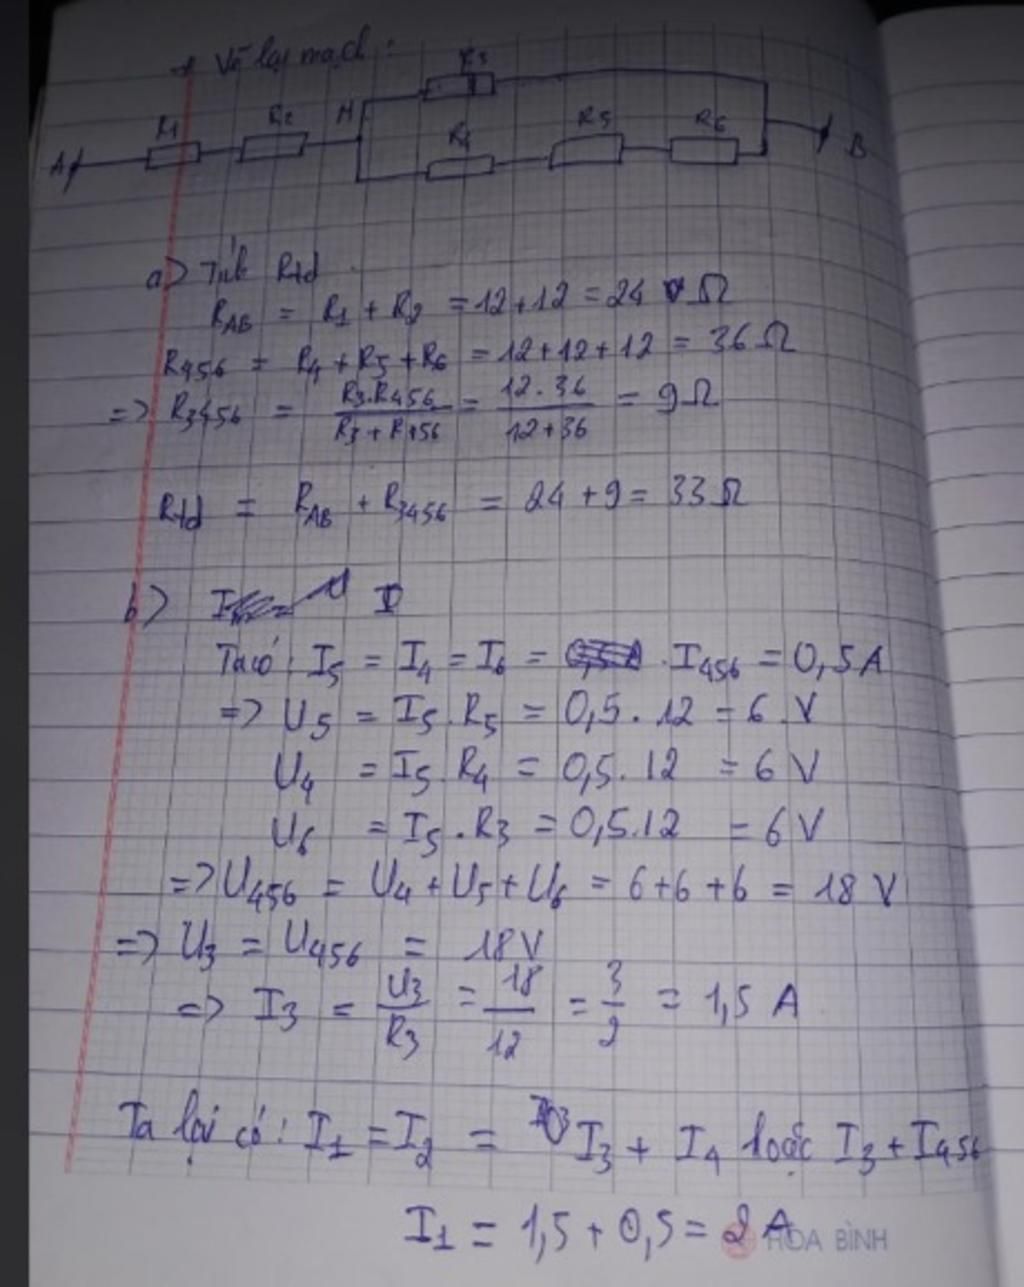 + Vẽ lại mạch :
R1 R2 M R3 R4 R5 R6
A B
a) Tính Rtđ
RAB = R1 + R2 = 12 + 12 = 24 Ω
R456 = R4 + R5 + R6 = 12 + 12 + 12 = 36 Ω
=> R3456 = R3.R456 / R3 + R456 = 12.36 / 12 + 36 = 9 Ω
Rtđ = RAB + R3456 = 24 + 9 = 33 Ω
b) I
Ta có : I5 = I4 = I6 = I456 = 0,5 A
=> U5 = I5 . R5 = 0,5 . 12 = 6 V
U4 = I5 . R4 = 0,5 . 12 = 6 V
U6 = I5 . R3 = 0,5 . 12 = 6 V
=> U456 = U4 + U5 + U6 = 6 + 6 + 6 = 18 V
=> U3 = U456 = 18 V
=> I3 = U3 / R3 = 18 / 12 = 3 / 2 = 1,5 A
Ta lại có : I1 = I2 = I3 + I4 hoặc I3 + I456
I1 = 1,5 + 0,5 = 2 A
HOA BÌNH